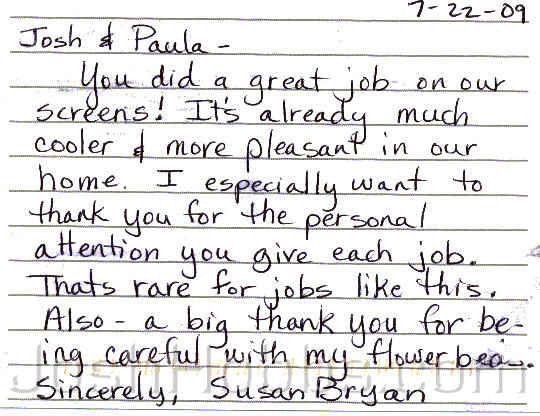 7-22-09
Josh & Paula -
You did a great job on our
screens! It's already much
cooler & more pleasant in our
home. I especially want to
thank you for the personal
attention you give each job.
Thats rare for jobs like this.
Also - a big thank you for be-
ing careful with my flower
Sincerely, Susan Bryan